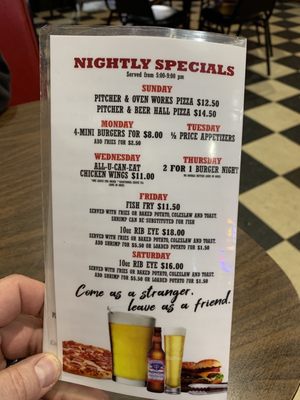 NIGHTLY SPECIALS
Served from 5:00-9:00 pm
SUNDAY
PITCHER & OVEN WORKS PIZZA $12.50
PITCHER & BEER HALL PIZZA $14.50
MONDAY
4-MINI BURGERS FOR $8.00
ADD FRIES FOR $2.50
TUESDAY
½ PRICE APPETIZERS
WEDNESDAY
ALL-U-CAN-EAT
CHICKEN WINGS $11.00
THURSDAY
2 FOR 1 BURGER NIGHT
FRIDAY
FISH FRY $11.50
SERVED WITH FRIES OR BAKED POTATO, COLESLAW AND TOAST.
SHRIMP CAN BE SUBSTITUTED FOR FISH
10oz RIB EYE $18.00
SERVED WITH FRIES OR BAKED POTATO, COLESLAW AND TOAST.
ADD SHRIMP FOR $5.50 OR LOADED POTATO FOR $1.50
SATURDAY
10oz RIB EYE $16.00
SERVED WITH FRIES OR BAKED POTATO, COLESLAW AND TOAST.
ADD SHRIMP FOR $5.50 OR LOADED POTATO FOR $1.50
Come as a stranger,
leave as a friend.